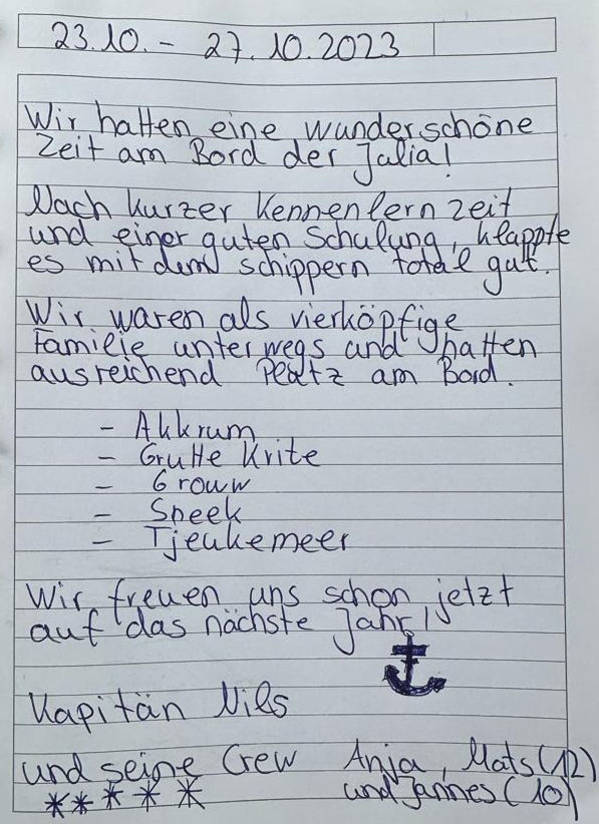 23.10. - 27.10.2023
Wir hatten eine wunderschöne
Zeit am Bord der Julia!
Nach kurzer Kennenlernzeit
und einer guten Schulung, klappte
es mit dem schippern total gut.
Wir waren als vierköpfige
Familie unterwegs und hatten
ausreichend Platz am Bord.
- Akkrum
- Grutte Krite
- Grouw
- Sneek
- Tjeukemeer
Wir freuen uns schon jetzt
auf das nächste Jahr!
Kapitän Nils
und seine Crew Anja, Mats (12)
und Jannes (10)
*****